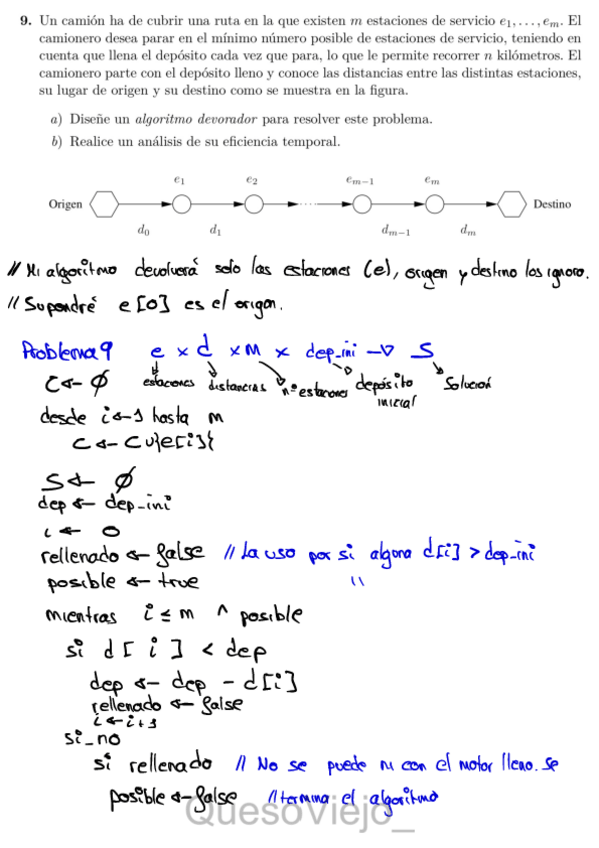 9. Un camión ha de cubrir una ruta en la que existen m estaciones de servicio e₁, . . . , eₘ. El
camionero desea parar en el mínimo número posible de estaciones de servicio, teniendo en
cuenta que llena el depósito cada vez que para, lo que le permite recorrer n kilómetros. El
camionero parte con el depósito lleno y conoce las distancias entre las distintas estaciones,
su lugar de origen y su destino como se muestra en la figura.
a) Diseñe un algoritmo devorador para resolver este problema.
b) Realice un análisis de su eficiencia temporal.
e₁ e₂ eₘ₋₁ eₘ
Origen Destino
d₀ d₁ dₘ₋₁ dₘ
// Mi algoritmo devolverá solo las estaciones (e), origen y destino los ignoro.
// Supondré e[0] es el origen.
Problema9 e x d x m x dep_ini → S
C ← ∅ estaciones distancias nº estaciones depósito inicial Solución
desde i ← 1 hasta m
C ← C ∪ {e[i]}
S ← ∅
dep ← dep_ini
i ← 0
rellenado ← false // La uso por si alguna d[i] > dep_ini
posible ← true "
mientras i ≤ m ∧ posible
si d[i] < dep
dep ← dep - d[i]
rellenado ← false
i ← i+1
si_no
si rellenado // No se puede ni con el motor lleno. Se
posible ← false // termina el algoritmo
Quesoviejo_